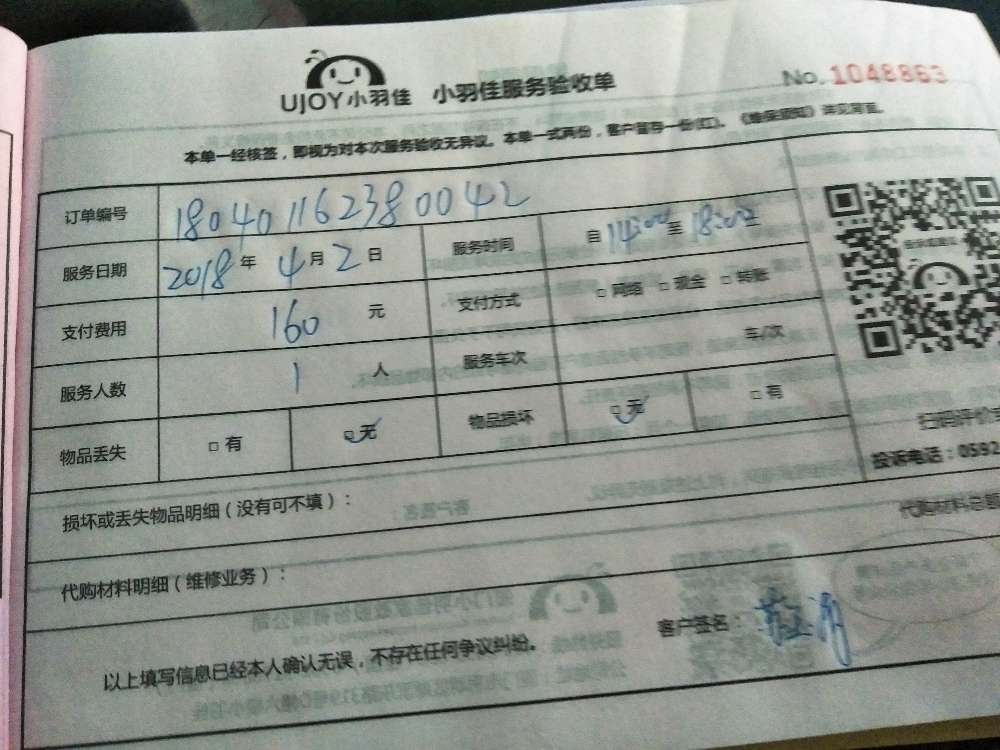 UJOY小羽佳 小羽佳服务验收单 No. 1048863
本单一经核签，即视为对本次服务验收无异议。本单一式两份，客户留存一份(红)。《维保须知》详见背面。
订单编号 180401162380042
服务日期 2018年 4月 2日 服务时间 自14:00至18:00止
支付费用 160 元 支付方式 □ 网络 □ 现金 □ 转账
服务人数 1 人 服务车次 车/次
物品丢失 □ 有 □ 无 物品损坏 □ 无 □ 有
扫码评价
投诉电话：0592
损坏或丢失物品明细（没有可不填）：
代购材料明细（维修业务）： 代购材料总
以上填写信息已经本人确认无误，不存在任何争议纠纷。 客户签名：